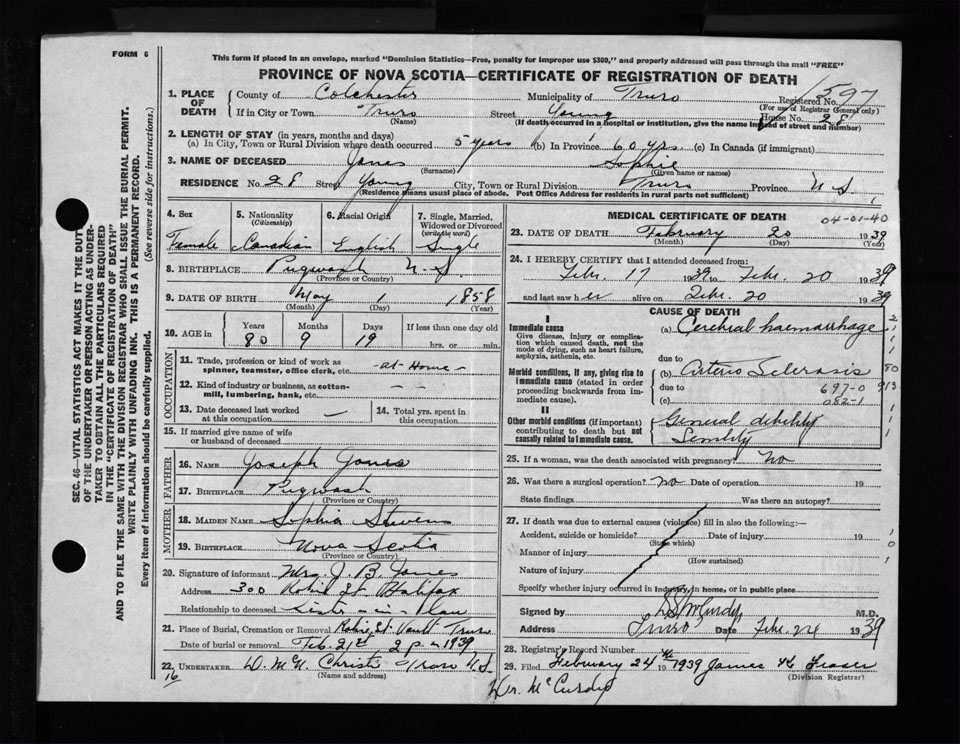 FORM 6
This form if placed in an envelope, marked "Dominion Statistics—Free, penalty for improper use $300," and properly addressed will pass through the mail "FREE"
PROVINCE OF NOVA SCOTIA—CERTIFICATE OF REGISTRATION OF DEATH
1. PLACE OF DEATH County of Colchester Municipality of Truro Registered No. 1597
(For use of Registrar General only)
If in City or Town Truro Street Young House No. 28
(Name) (If death occurred in a hospital or institution, give the name instead of street and number)
2. LENGTH OF STAY (in years, months and days)
(a) In City, Town or Rural Division where death occurred 5 years (b) In Province 60 yrs. (c) In Canada (if immigrant)
3. NAME OF DECEASED Jones Sophie
(Surname) (Given name or names)
RESIDENCE No. 28 Street Young City, Town or Rural Division Truro Province N S
(Residence means usual place of abode. Post Office Address for residents in rural parts not sufficient)
4. Sex 5. Nationality (Citizenship) 6. Racial Origin 7. Single, Married, Widowed or Divorced (write the word)
Female Canadian English Single
8. BIRTHPLACE Pugwash N.S.
(Province or Country)
9. DATE OF BIRTH May 1 1858
(Month) (Day) (Year)
10. AGE in Years Months Days If less than one day old
80 9 19 hrs. or min.
OCCUPATION
11. Trade, profession or kind of work as spinner, teamster, office clerk, etc. -at Home-
12. Kind of industry or business, as cotton-mill, lumbering, bank, etc. —
13. Date deceased last worked at this occupation — 14. Total yrs. spent in this occupation
15. If married give name of wife or husband of deceased
FATHER
16. NAME Joseph Jones
17. BIRTHPLACE Pugwash
(Province or Country)
MOTHER
18. MAIDEN NAME Sophia Stevens
19. BIRTHPLACE Nova Scotia
(Province or Country)
20. Signature of informant Mrs. J. B. Jones
Address 300 Robie St Halifax
Relationship to deceased Sister-in-law
21. Place of Burial, Cremation or Removal Robie St. Vault Truro
Date of burial or removal Feb. 21st 2 p.m 1939
22. UNDERTAKER Christie Truro N.S.
(Name and address)
16
MEDICAL CERTIFICATE OF DEATH
04-01-40
23. DATE OF DEATH February 20 1939
(Month) (Day) (Year)
24. I HEREBY CERTIFY that I attended deceased from:
Feb. 17 1939 to Feb. 20 1939
and last saw her alive on Feb. 20 1939
CAUSE OF DEATH
I
Immediate cause
Give disease, injury or complication which caused death, not the mode of dying, such as heart failure, asphyxia, asthenia, etc.
(a) Cerebral haemorrhage
due to
Morbid conditions, if any, giving rise to immediate cause (stated in order proceeding backwards from immediate cause).
(b) Arterio Sclerosis
due to 697-0
(c) 082-1
80
913
II
Other morbid conditions (if important) contributing to death but not causally related to immediate cause.
General debility
Senility
25. If a woman, was the death associated with pregnancy? No
26. Was there a surgical operation? No Date of operation 19
State findings Was there an autopsy?
27. If death was due to external causes (violence) fill in also the following:—
Accident, suicide or homicide? Date of injury 19
(State which)
Manner of injury
(How sustained)
Nature of injury
Specify whether injury occurred in industry, in home, or in public place
Signed by McCurdy M.D.
Address Truro Date Feb. 24 1939
28. Registrar's Record Number
29. Filed February 24th 1939 James Fraser
(Division Registrar)
Dr. McCurdy
SEC. 46—VITAL STATISTICS ACT MAKES IT THE DUTY
OF THE UNDERTAKER OR PERSON ACTING AS UNDER-
TAKER TO OBTAIN ALL THE PARTICULARS REQUIRED
IN THE "CERTIFICATE OF REGISTRATION OF DEATH"
AND TO FILE THE SAME WITH THE DIVISION REGISTRAR WHO SHALL ISSUE THE BURIAL PERMIT.
WRITE PLAINLY WITH UNFADING INK. THIS IS A PERMANENT RECORD.
Every item of information should be carefully supplied. (See reverse side for instructions.)